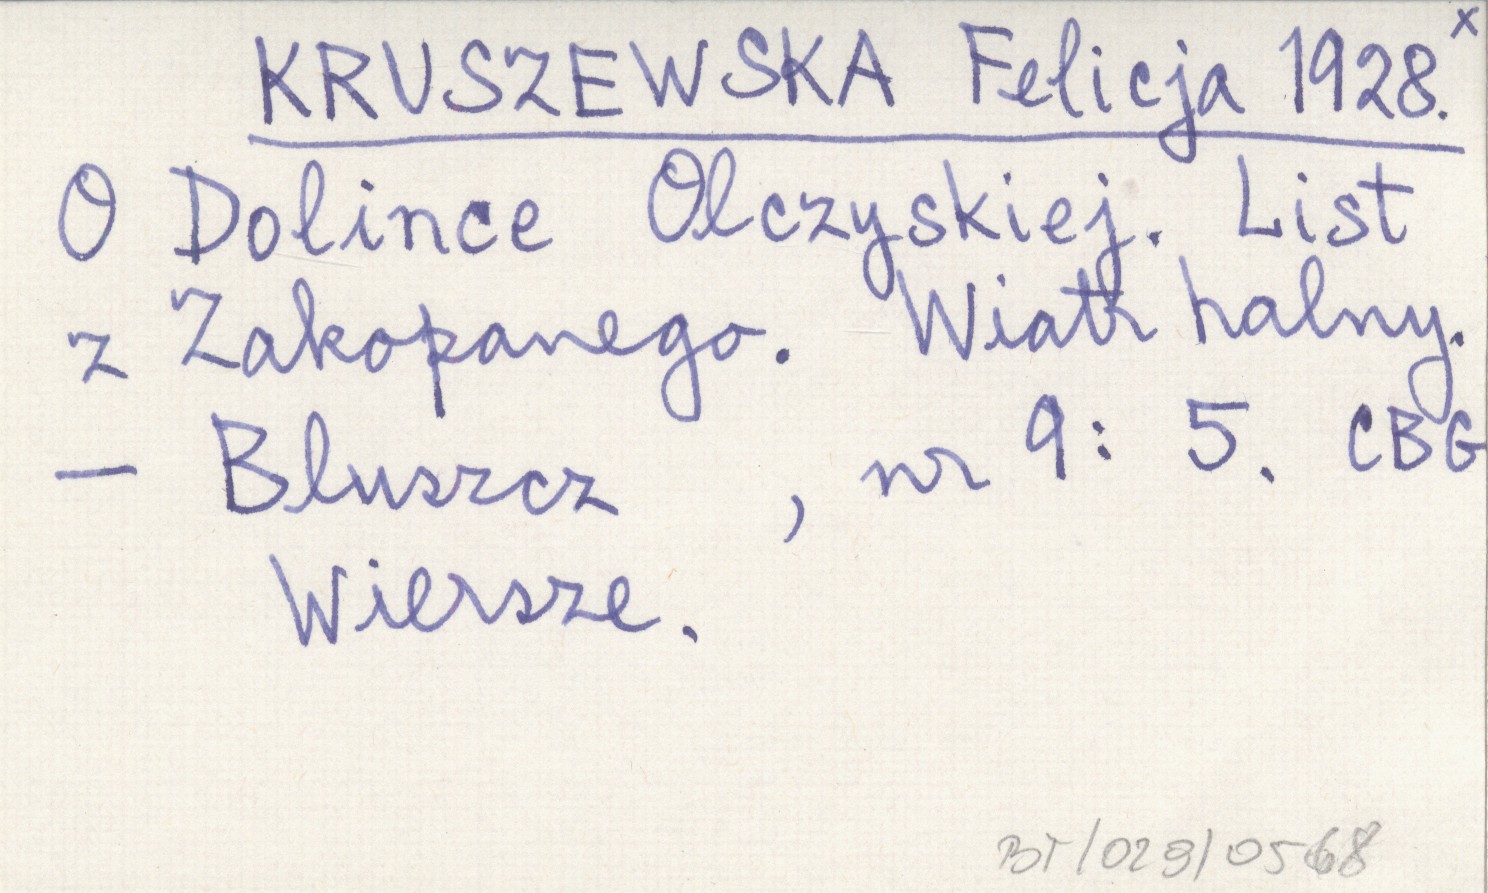 KRUSZEWSKA Felicja 1928.x
O Dolince Olczyskiej. List
z Zakopanego. Wiatr halny.
— Bluszcz , nr 9: 5. CBG
Wiersze.
BT/029/0568